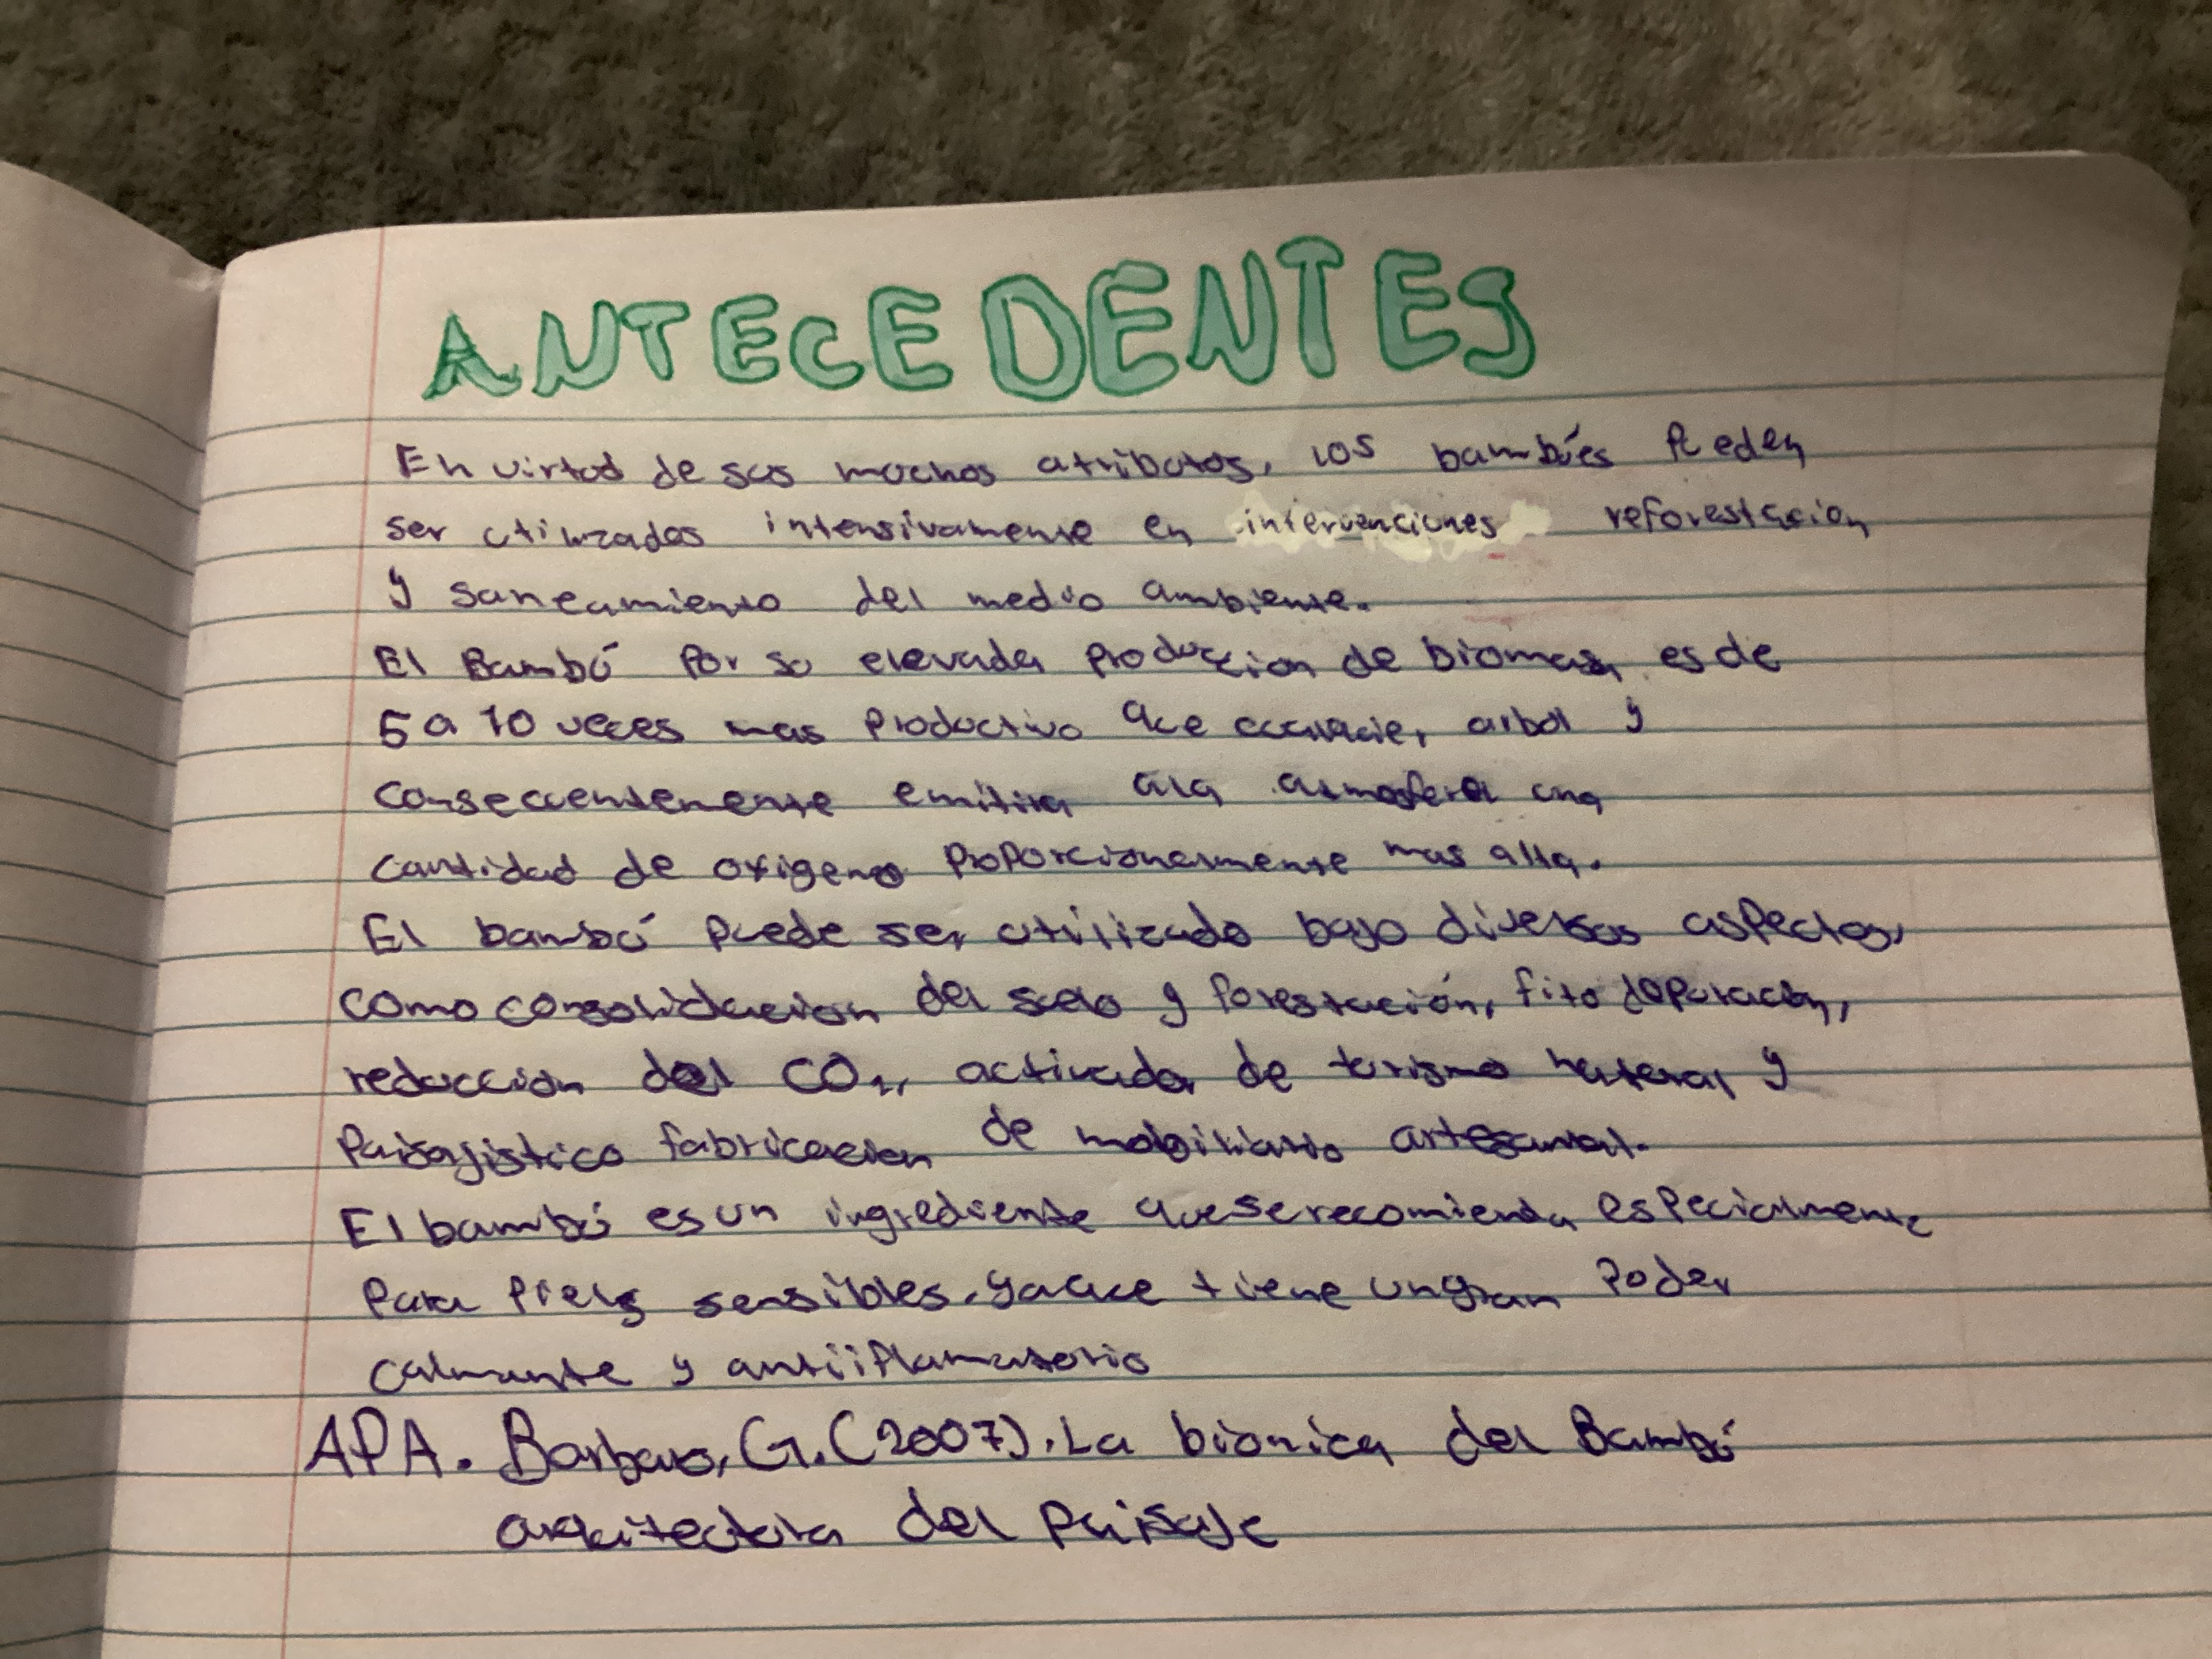 ANTECEDENTES
En virtud de sus muchos atributos, los bambúes pueden
ser utilizados intensivamente en intervenciones reforestacion
y saneamiento del medio ambiente.
El Bambú por su elevada produccion de biomasa es de
5 a 10 veces mas productivo que cualquier arbol y
consecuentemente emitira ala atmosfera una
cantidad de oxigeno proporcionalmente mas alta.
El bambú puede ser utilizado bajo diversos aspectos,
como consolidacion del suelo y forestación, fito depuración,
reduccion del CO2, activador de turismo natural y
paisajistico fabricacion de mobiliario artesanal.
El bambú es un ingrediente que se recomienda especialmente
para piels sensibles. ya que tiene un gran poder
calmante y antiiflamatorio
APA. Barbaro, G. (2007). La bionica del Bambú
arquitectura del paisaje